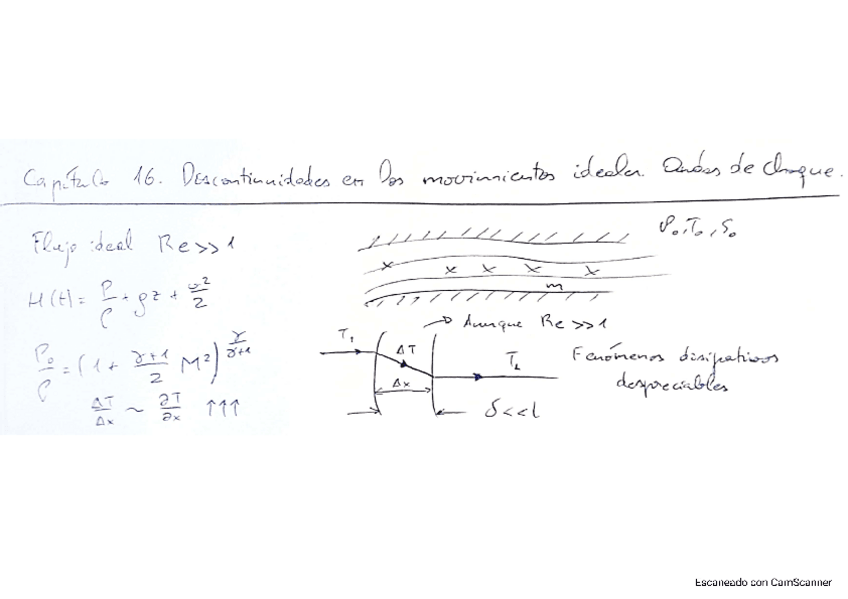 Capítulo 16. Descontinuidades en los movimientos ideales. Ondas de choque.
Flujo ideal Re>>1
H(t) = P/ρ + gz + v²/2
P₀/ρ = (1 + γ+1/2 M²)^γ/γ+1
ΔT/Δx ~ ∂T/∂x ↑↑↑
P₀, T₀, S₀
x x x x x
m
→ Aunque Re>>1
T₁ ΔT T₂
Δx
δ<<l
Fenómenos disipativos
despreciables
Escaneado con CamScanner